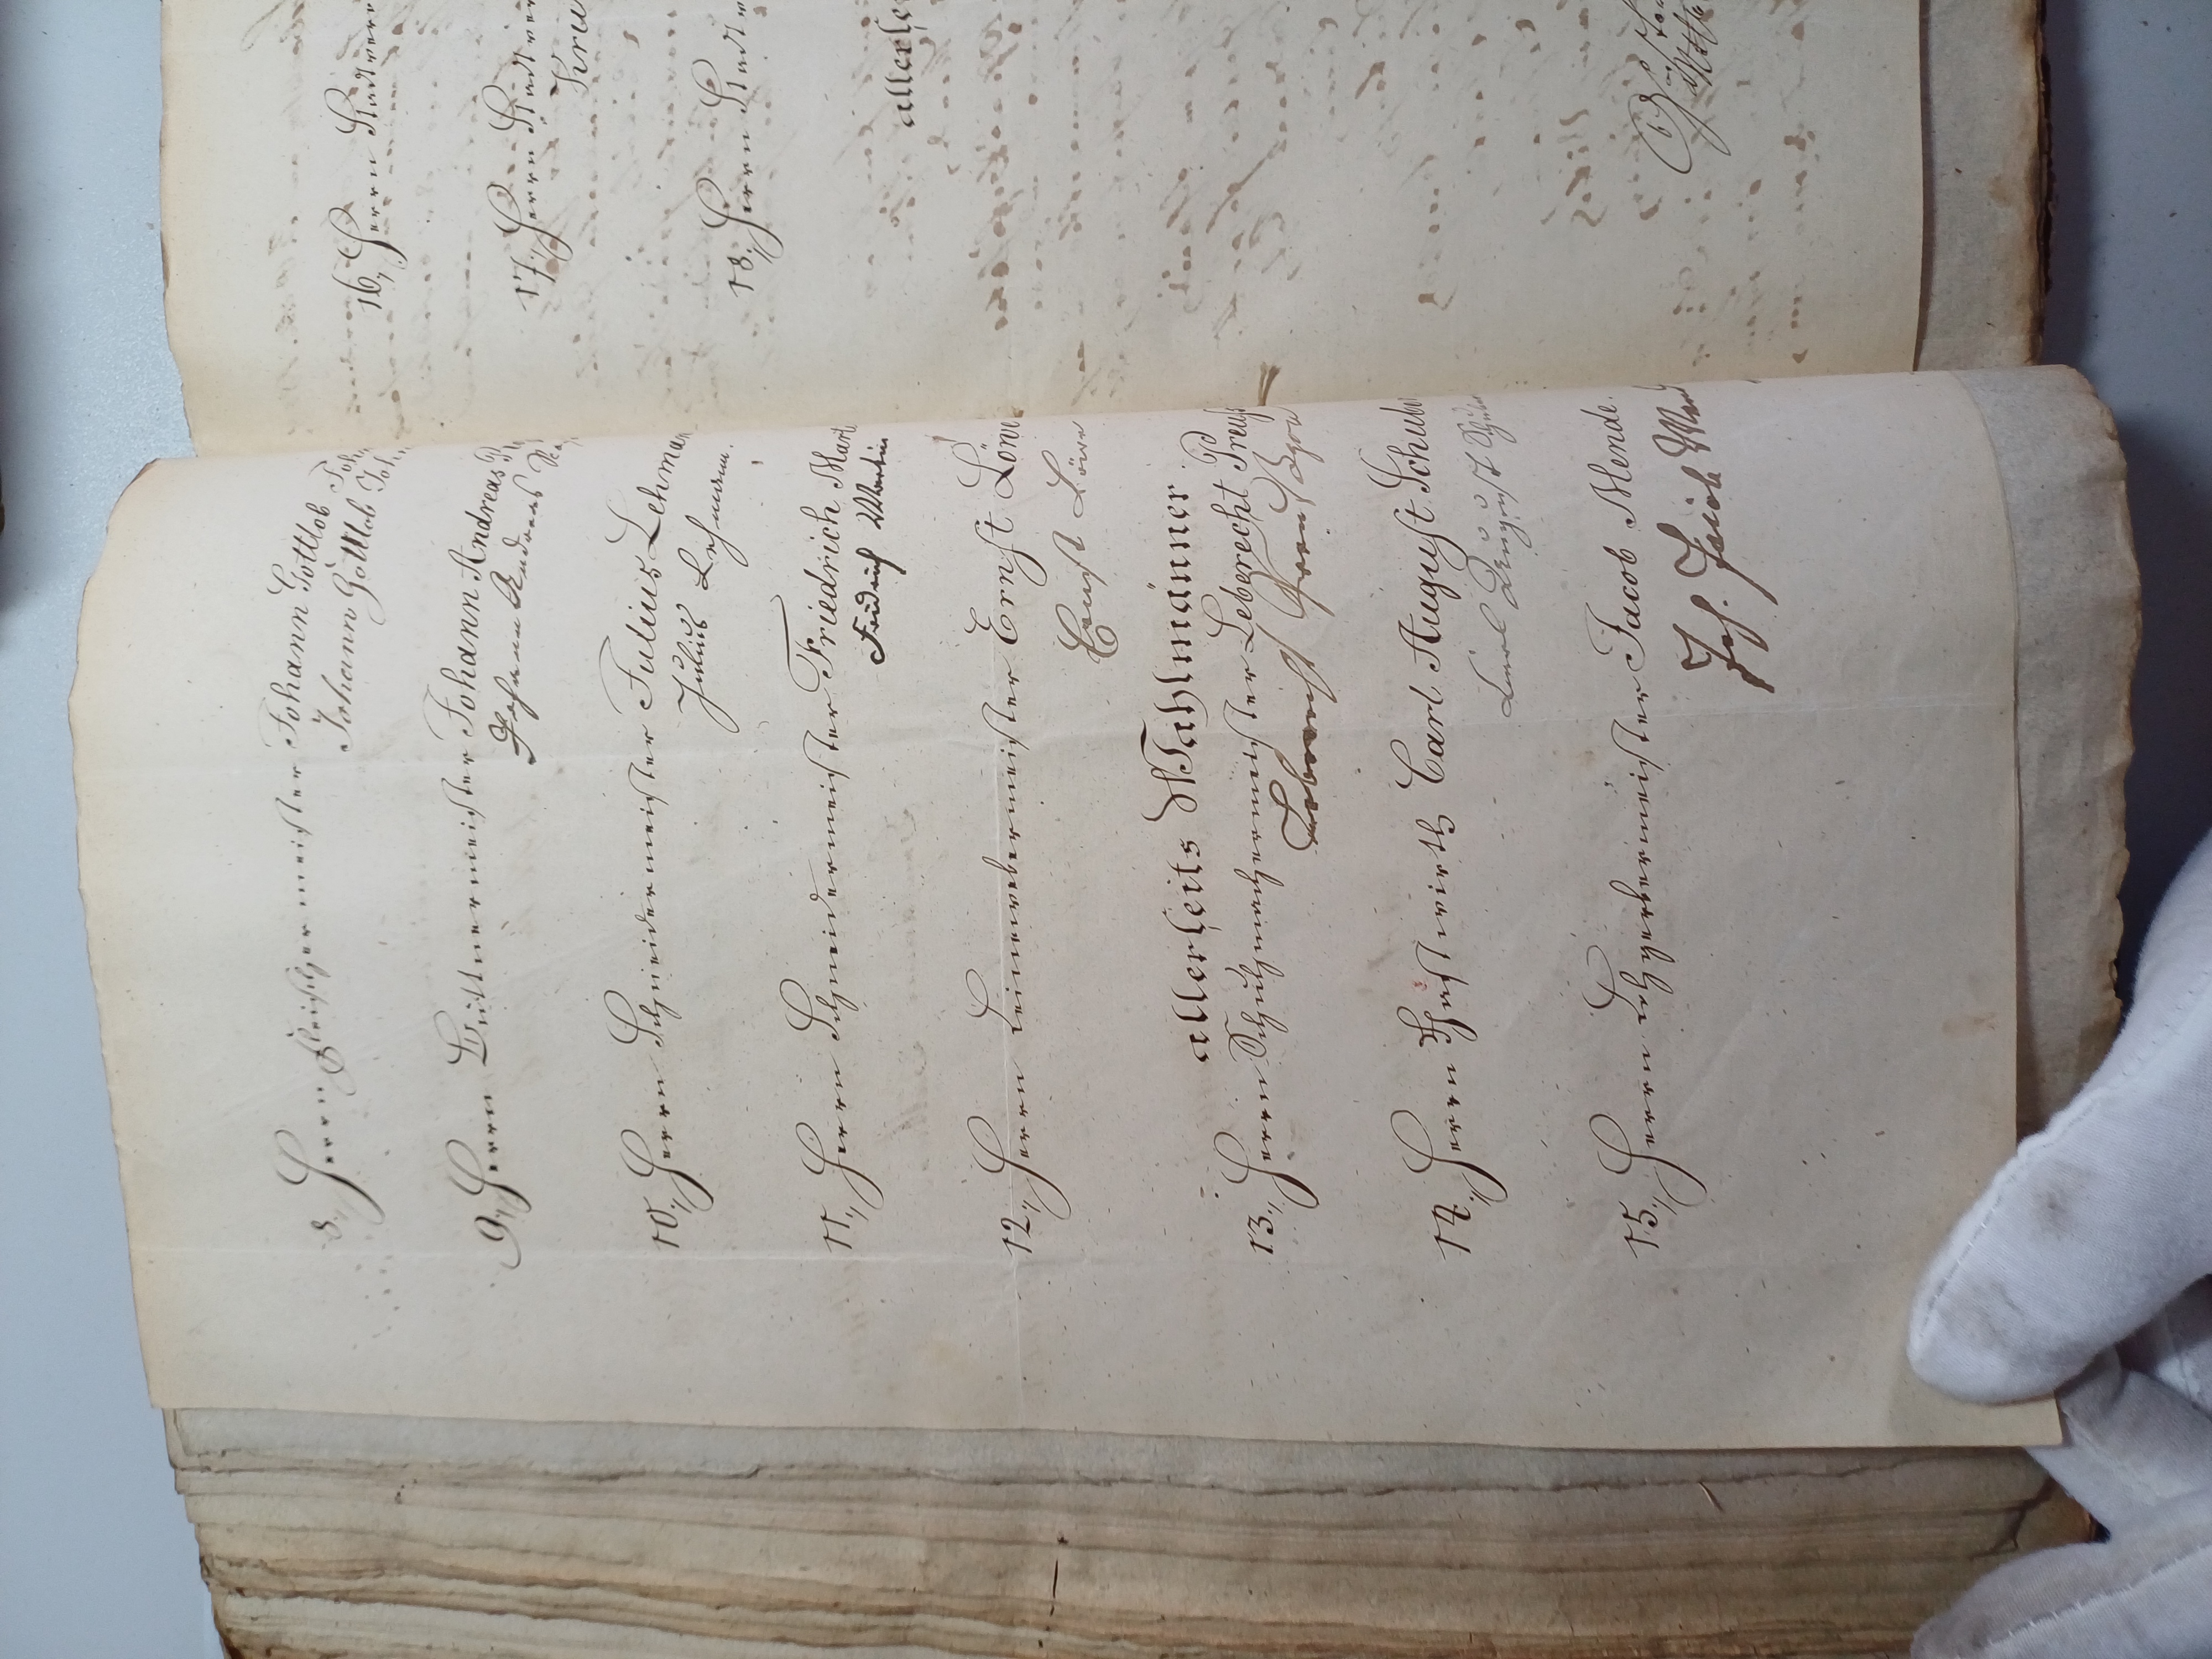 8., Herrn Fleischermeister Johann Gottlob Joh
Johann Gottlob Joh
9., Herrn Büttnermeister Johann Andreas
Johann Andreas
10., Herrn Schneidermeister Julius Lehman
Julius Lehmann.
11., Herrn Schneidermeister Friedrich Mart
Friedrich Martin
12., Herrn Leinewebermeister Ernst Löwe
Ernst Löwe
allerseits Wahlmänner
13., Herrn Schuhmachermeister Leberecht Preuß
Leberecht
14., Herrn Gastwirth Carl August Schub
Carl August
15., Herrn Lohgerbermeister Jacob Mende.
Joh. Jacob
16., Herrn Stadtver
17., Herrn Stadtver
Kru
18., Herrn Stadtv
allerse